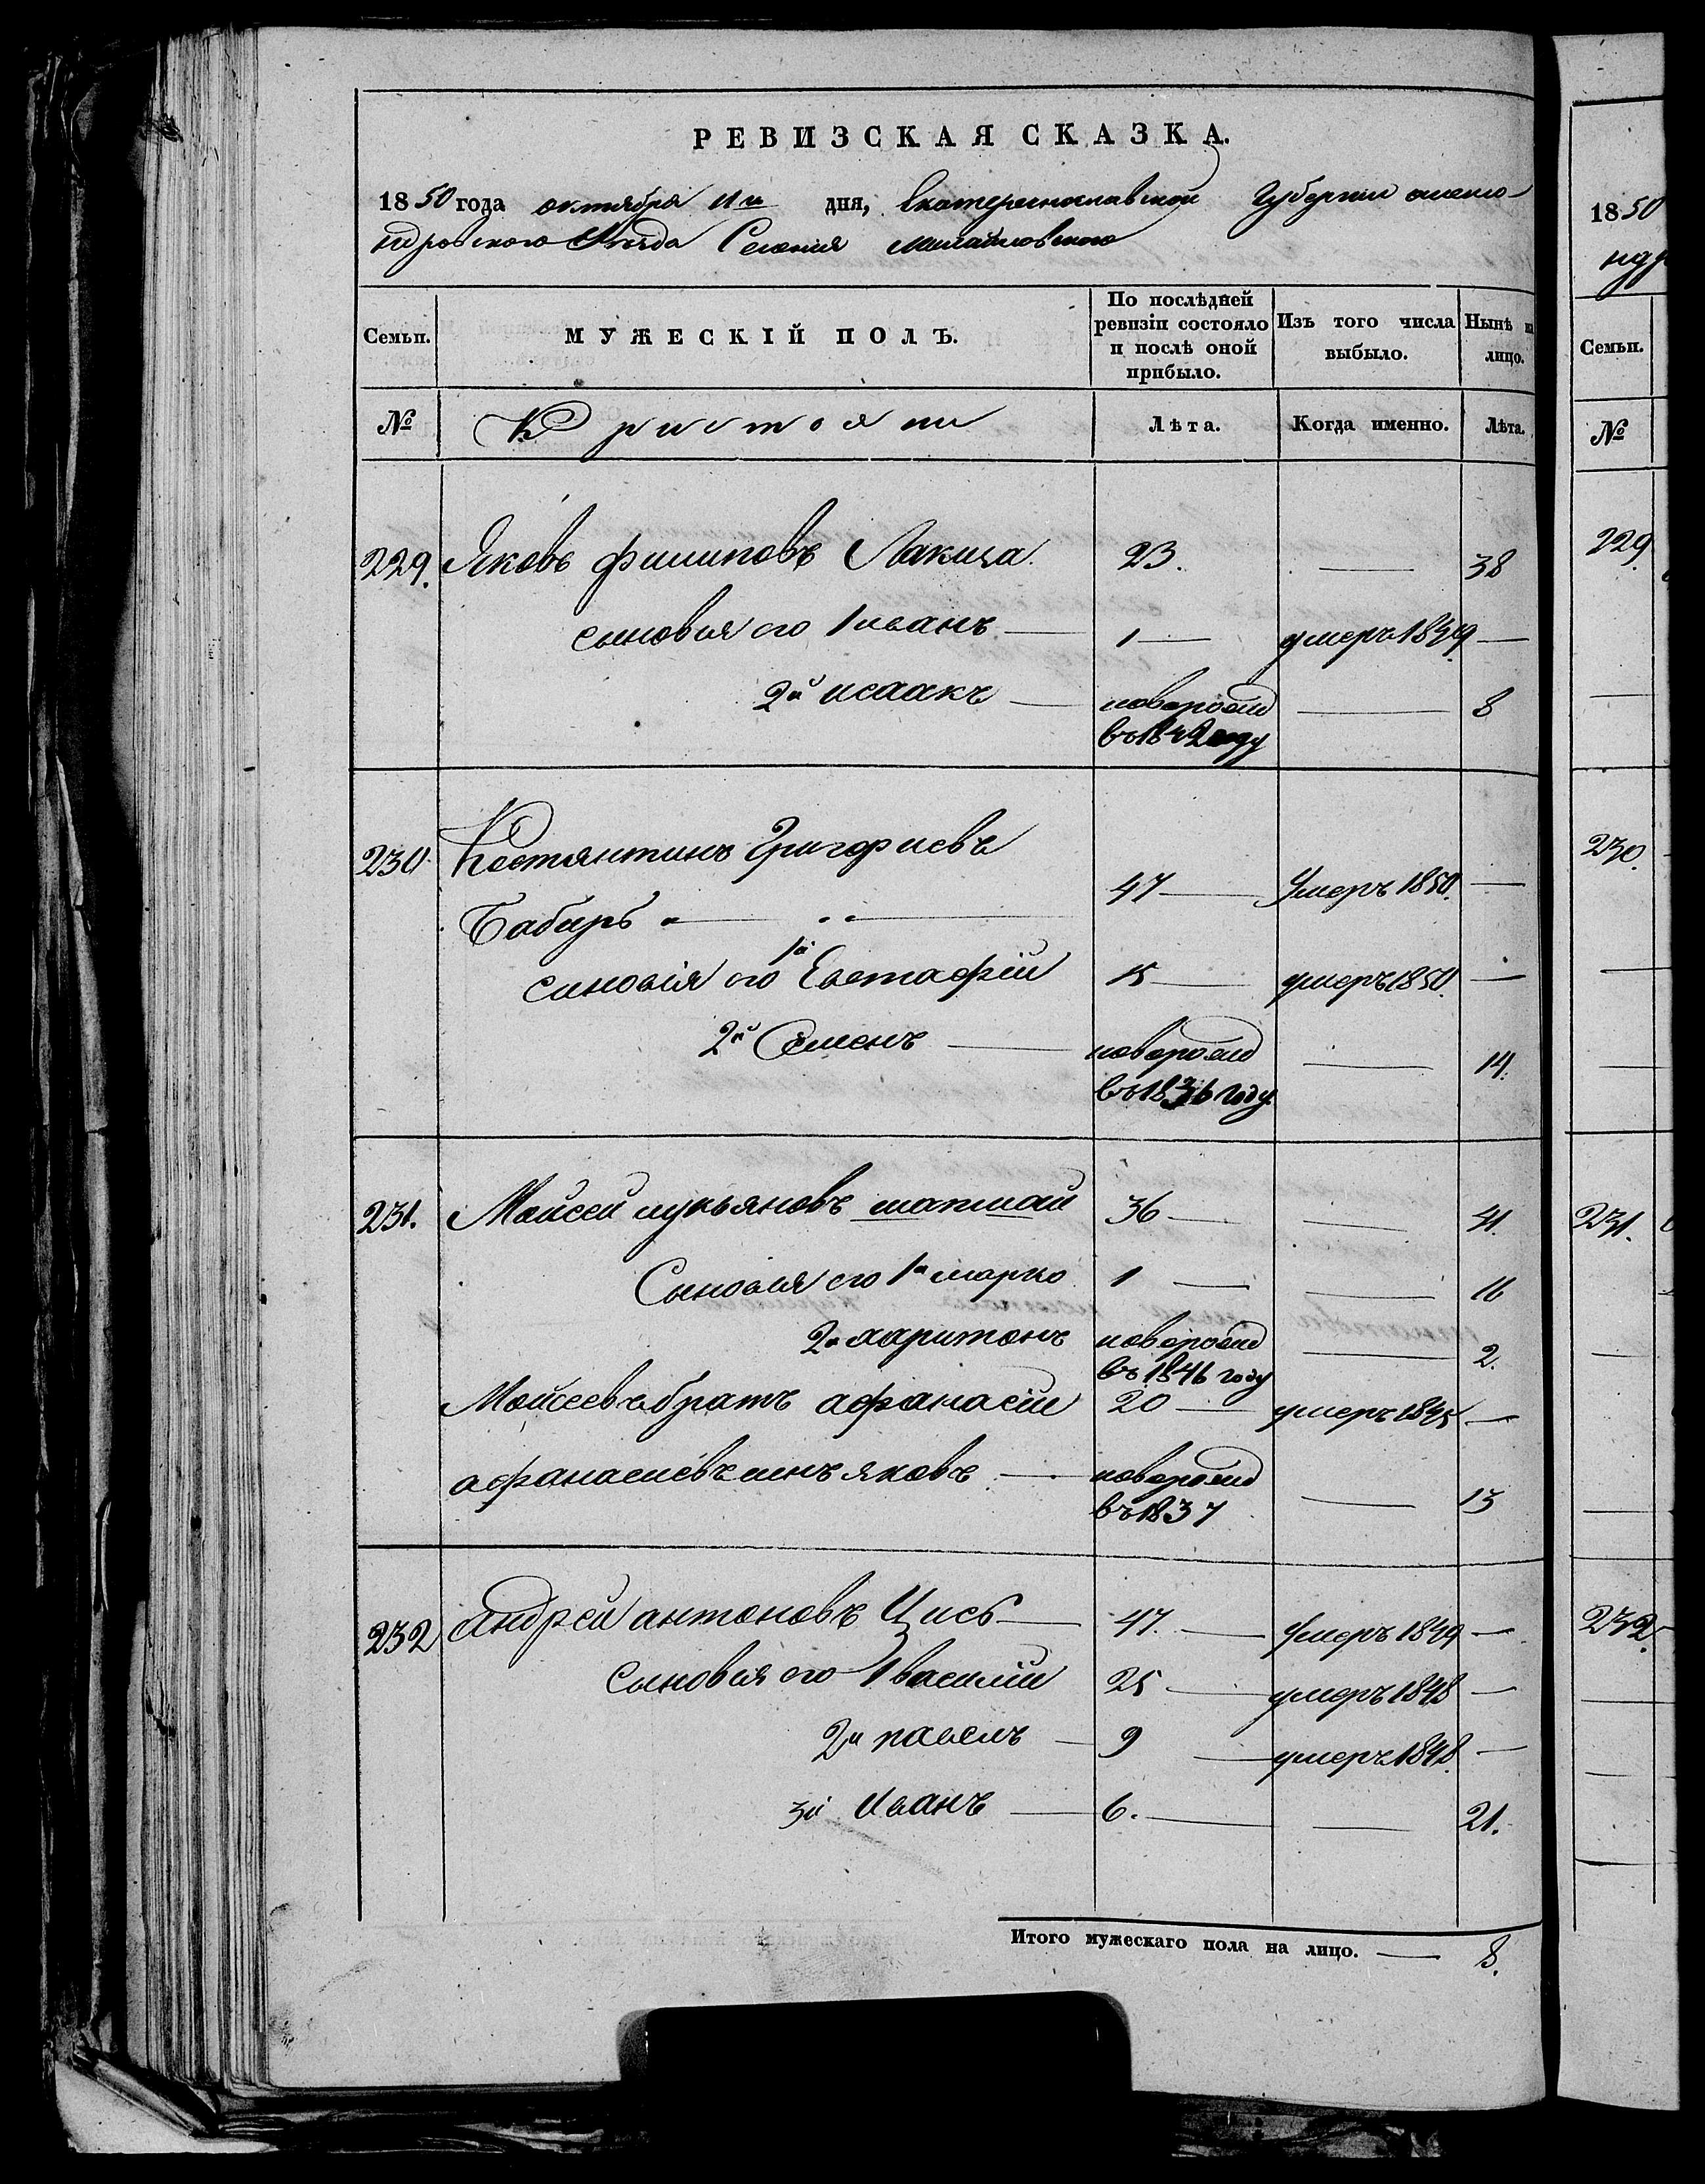 РЕВИЗСКАЯ СКАЗКА.
1850 года октября 11 дня, Екатеринославской Губернии алекса-
ндровского Уезда Селения михайловского
Семьи. МУЖЕСКІЙ ПОЛЪ. По послѣдней ревизіи состояло и послѣ оной прибыло. Изъ того числа выбыло. Нынѣ на лицо.
№ Лѣта. Когда именно. Лѣта.
229. Яковъ филиповъ Лакиза. 23. — 38
сыновья его 1 иванъ — 1 — умеръ 1849 —
2й исаакъ — новорожд — 8
въ 1842 году
230 Костянтинъ Григориевъ
Бабиръ — 47 — Умеръ 1850. —
синовія его 1й Евстафій 15 — умеръ 1850. —
2й Семенъ — новорожд — 14.
въ 1836 году
231. Мойсей лукьяновъ шапшай 36 — — 41.
Сыновья его 1й марко 1 — — 16
2й харитонъ новорожд — 2.
въ 1846 году
Мойсеевъ братъ афанасій 20 — умеръ 1845 —
афанасиевъ синъ яковъ — новорожд — 13
въ 1837
232 Андрей антоновъ Цись — 47. — Умеръ 1849 —
сыновья его 1 василій 25 — умеръ 1848 —
2й павелъ — 9 — умеръ 1848. —
3й Иванъ — 6. — — 21.
Итого мужескаго пола на лицо. — 8.
1850
ндр
Семьи.
№
229
230.
231.
232.